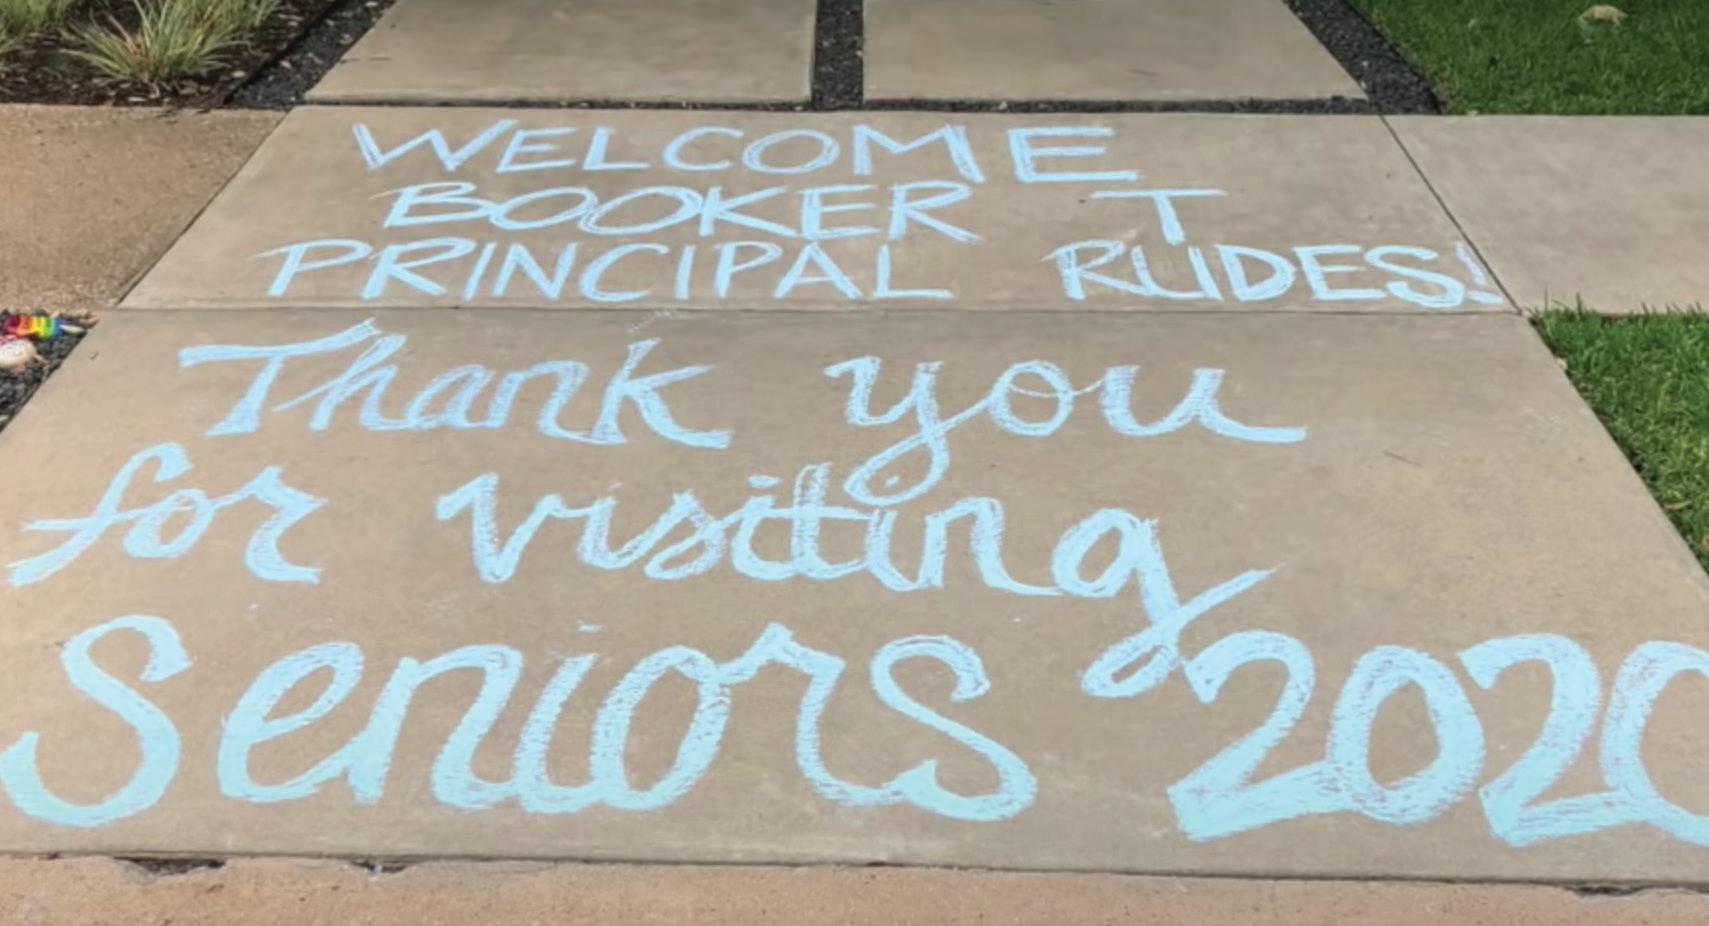 WELCOME
BOOKER T
PRINCIPAL RUDES!
Thank you
for visiting
Seniors 2020